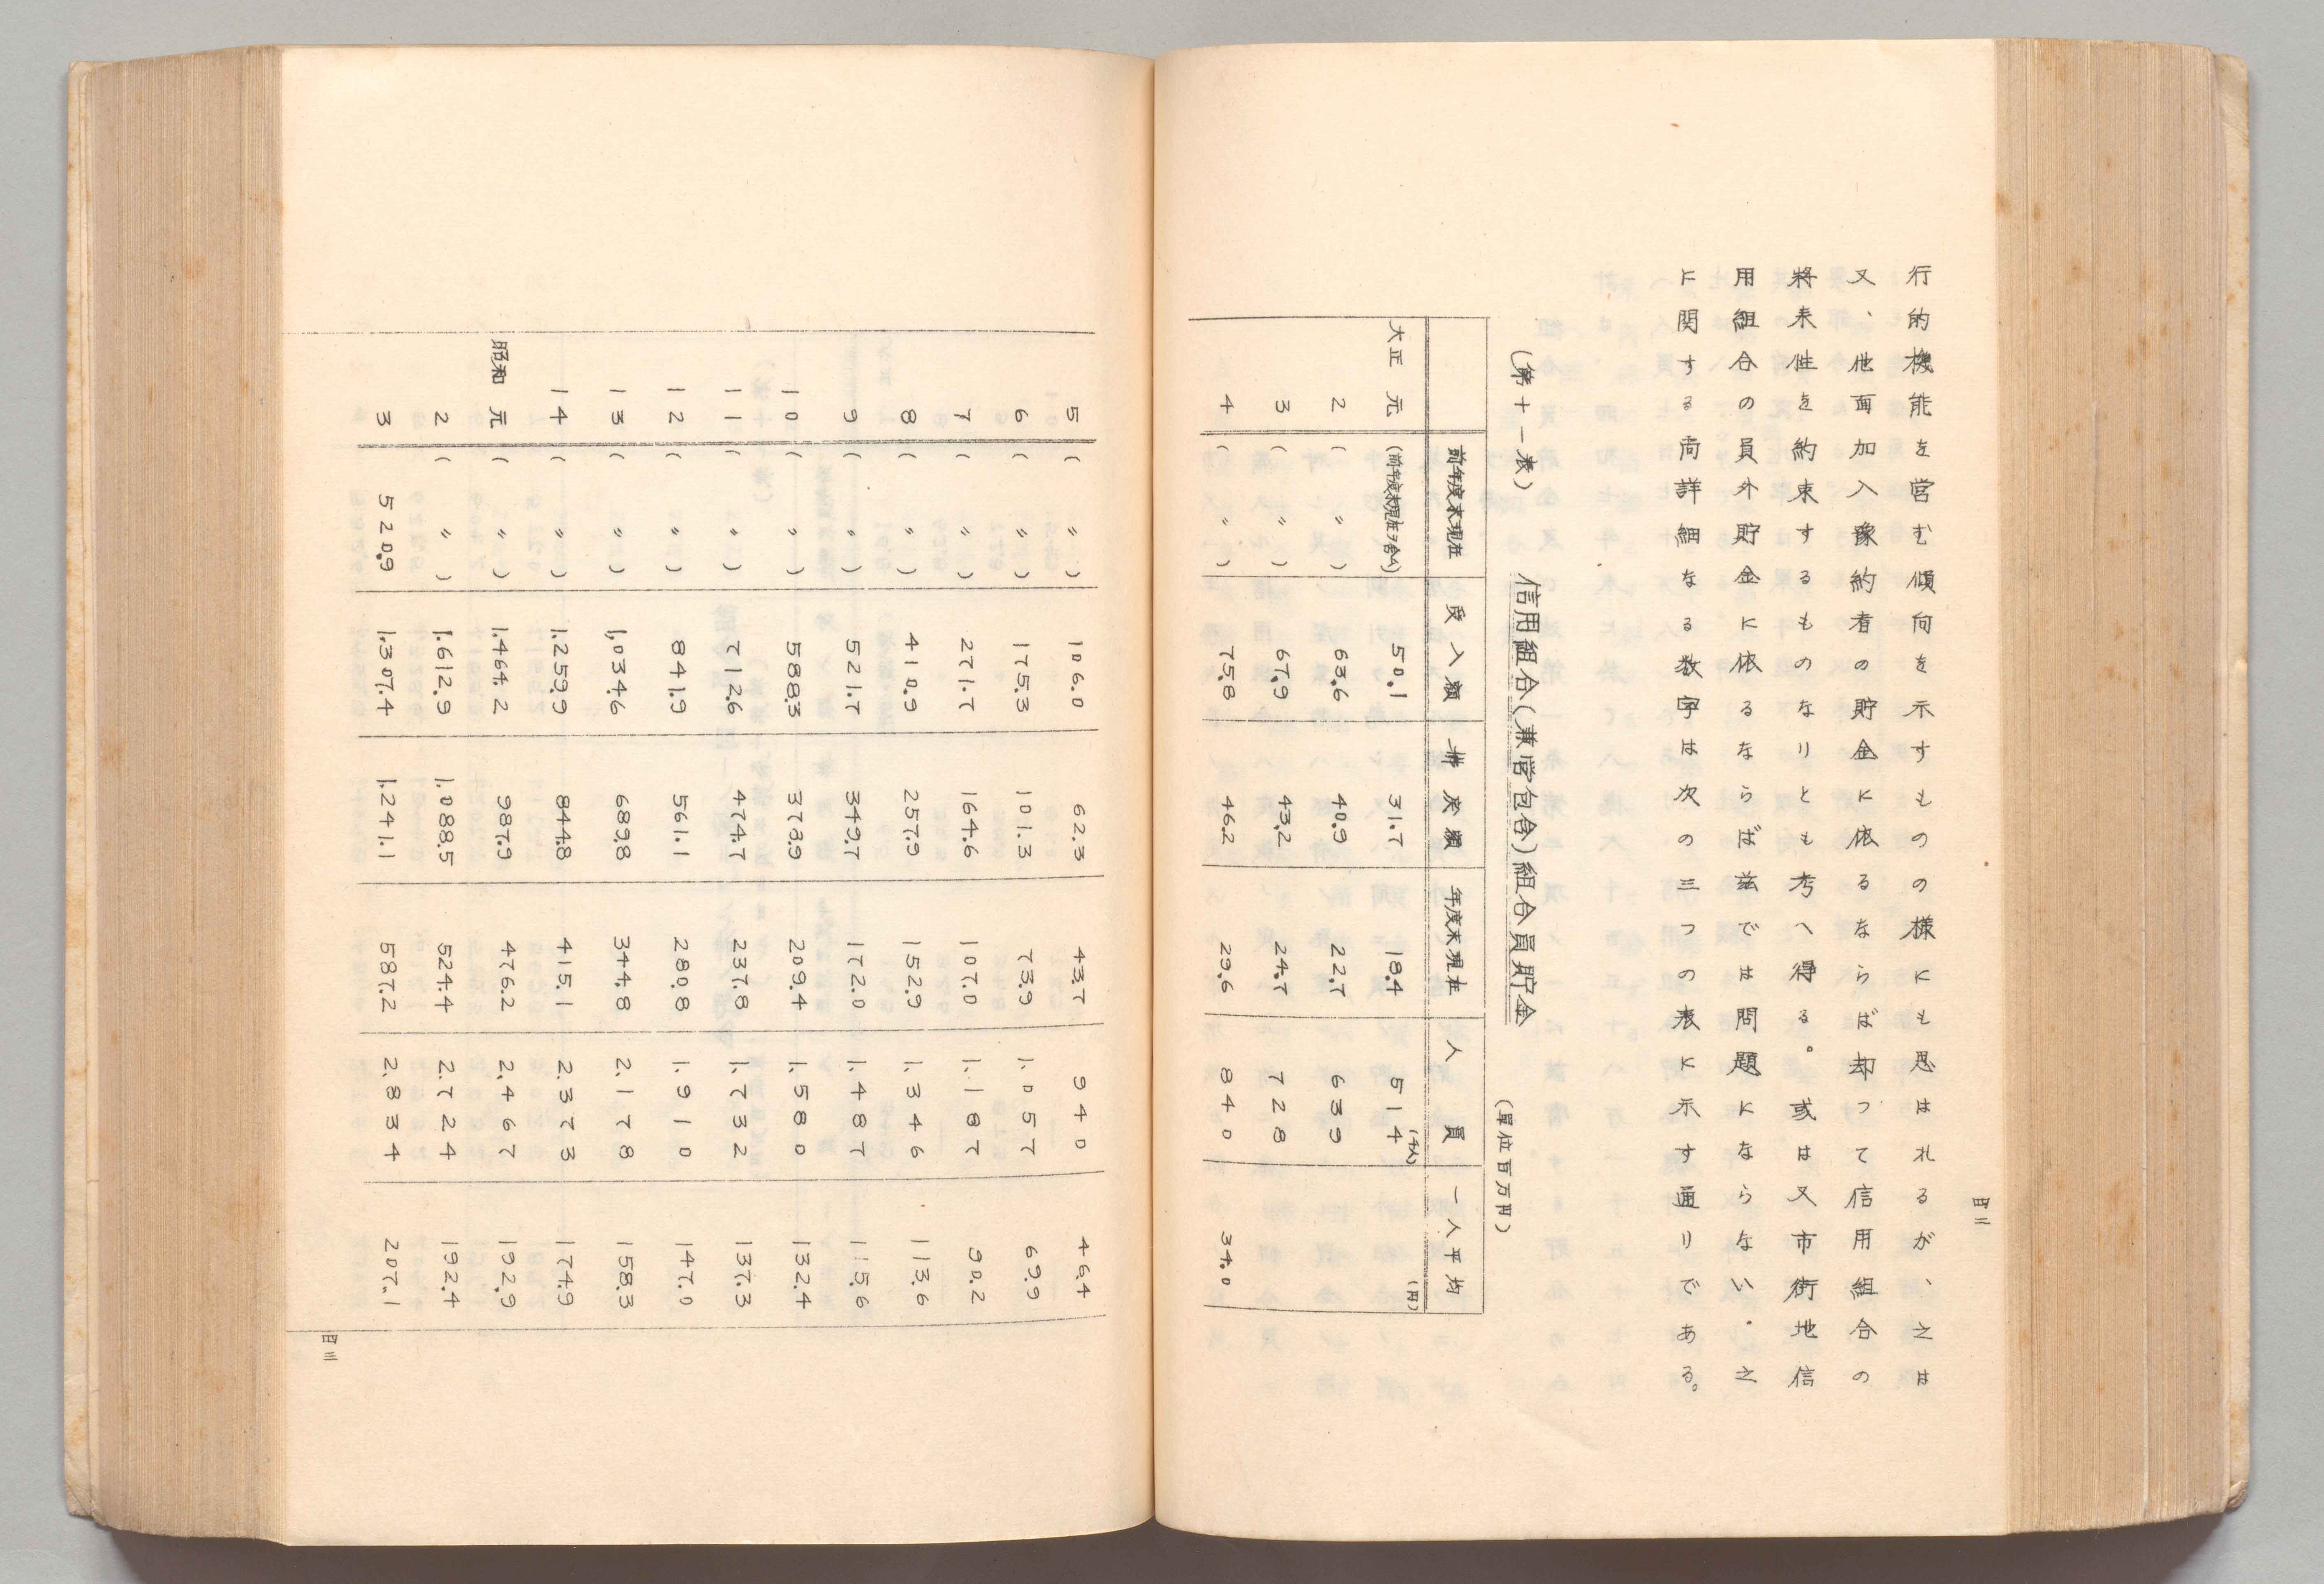 四二
行的機能を営む傾向を示すものの様にも思はれるが、之は
又、他面加入豫約者の貯金に依るならば却つて信用組合の
將来性を約束するものなりとも考へ得る。或は又市街地信
用組合の員外貯金に依るならば茲では問題にならない。之
に関する尚詳細なる数字は次の三つの表に示す通りである。
(第十一表) 信用組合(兼営包含)組合員貯金
(單位百万円)
前年度末現在 受入額 拂戻額 年度末現在 人員 一人平均
(千人) (円)
大正 元 (前年度末現在ヲ含ム) 50.1 31.7 18.4 514
2 ( 〃 ) 63.6 40.9 22.7 639
3 ( 〃 ) 67.9 43.2 24.7 728
4 ( 〃 ) 75.8 46.2 29.6 840 34.0
5 ( 〃 ) 106.0 62.3 43.7 940 46.4
6 ( 〃 ) 175.3 101.3 73.9 1,057 69.9
7 ( 〃 ) 271.7 164.6 107.0 1,187 90.2
8 ( 〃 ) 410.9 257.9 152.9 1,346 113.6
9 ( 〃 ) 521.7 349.7 172.0 1,487 115.6
10 ( 〃 ) 588.3 378.9 209.4 1,580 132.4
11 ( 〃 ) 712.6 474.7 237.8 1,732 137.3
12 ( 〃 ) 841.9 561.1 280.8 1,910 147.0
13 ( 〃 ) 1,034.6 689.8 344.8 2,178 158.3
14 ( 〃 ) 1,259.9 844.8 415.1 2,373 174.9
昭和 元 ( 〃 ) 1,464.2 987.9 476.2 2,467 192.9
2 ( 〃 ) 1,612.9 1,088.5 524.4 2,724 192.4
3 520.9 1,307.4 1,241.1 587.2 2,834 207.1
四三